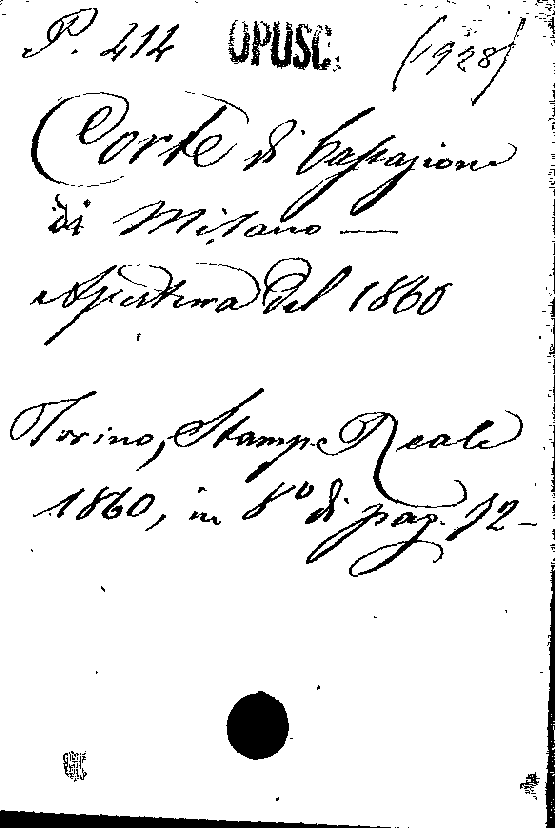 P. 414 OPUSC. (928)
Corte di Cassazione
di Milano —
Apertura del 1860
Torino, Stamp. Reale
1860, in 8º di pag. 72 –